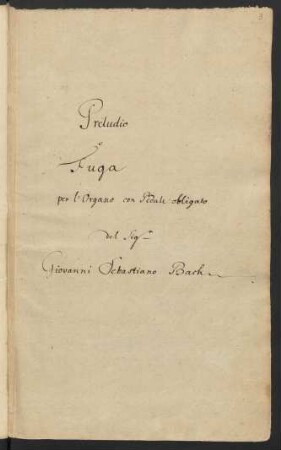 3
Preludio
e
Fuga
per l'Organo con Pedale obligato
del Sigr
Giovanni Sebastiano Bach